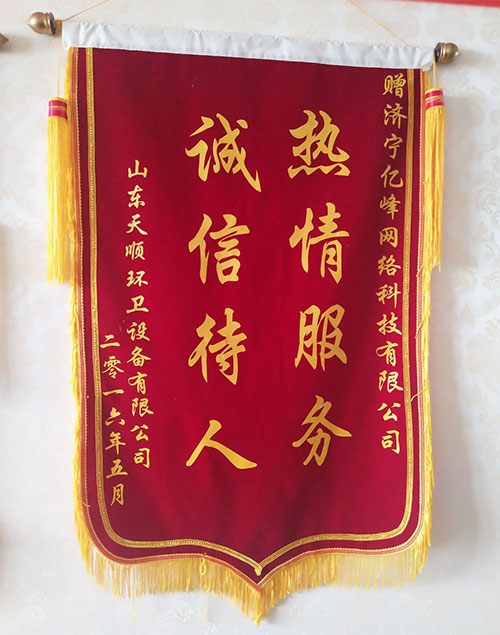 赠济宁亿峰网络科技有限公司
热情服务
诚信待人
山东天顺环卫设备有限公司
二零一六年五月